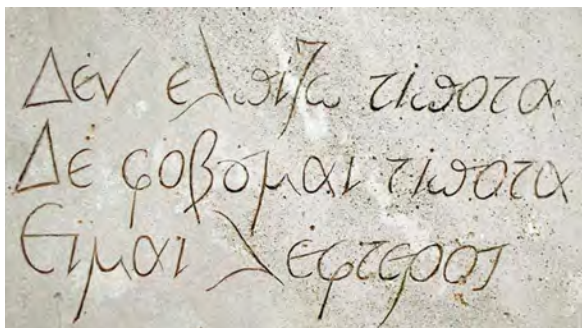 Δέν ελπίζω τίποτα
Δέ φοβόμαι τίποτα
Είμαι λέφτερος